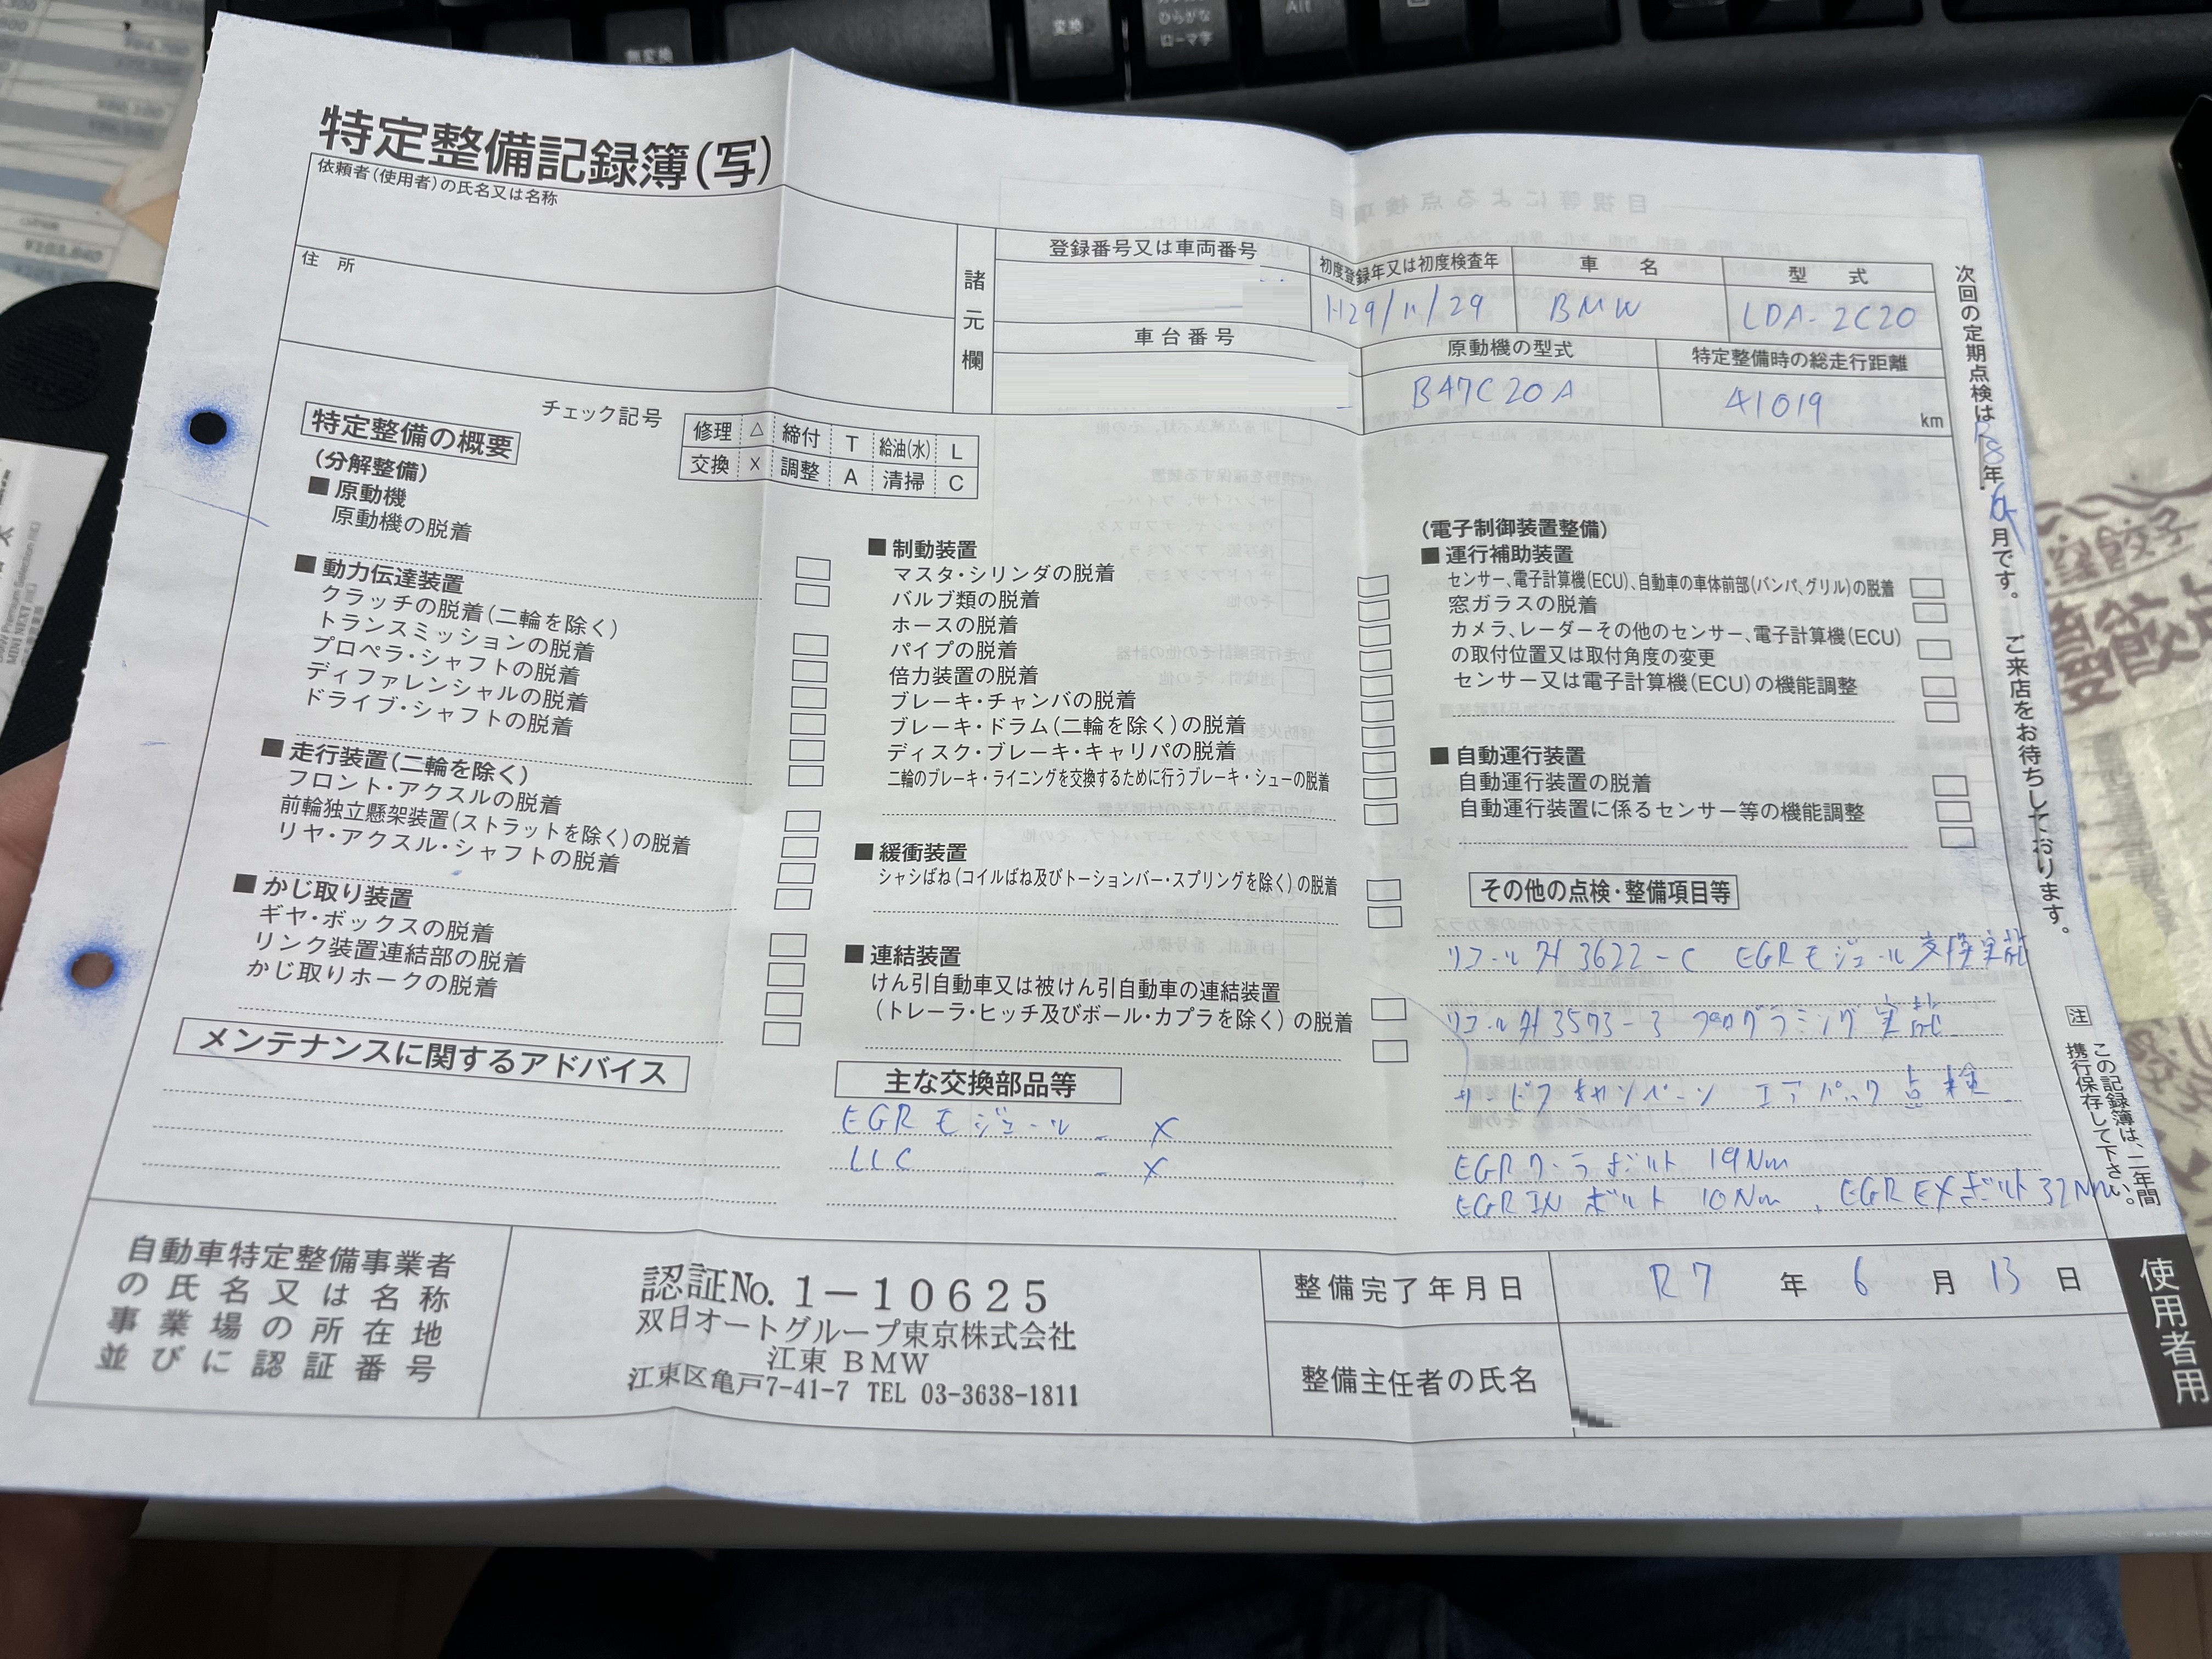 変換
ひらがな
ローマ字
Alt
無変換
特定整備記録簿(写)
依頼者(使用者)の氏名又は名称
住 所
諸元欄
登録番号又は車両番号
初度登録年又は初度検査年
車 名
型 式
H29/11/29
BMW
LDA-2C20
車台番号
原動機の型式
特定整備時の総走行距離
B47C20A
41019 km
次回の定期点検はR8年6月です。 ご来店をお待ちしております。
注 この記録簿は、二年間携行保存して下さい。
チェック記号
修理 △ 締付 T 給油(水) L
交換 × 調整 A 清掃 C
特定整備の概要
(分解整備)
■ 原動機
原動機の脱着
■ 動力伝達装置
クラッチの脱着(二輪を除く)
トランスミッションの脱着
プロペラ・シャフトの脱着
ディファレンシャルの脱着
ドライブ・シャフトの脱着
■ 走行装置(二輪を除く)
フロント・アクスルの脱着
前輪独立懸架装置(ストラットを除く)の脱着
リヤ・アクスル・シャフトの脱着
■ かじ取り装置
ギヤ・ボックスの脱着
リンク装置連結部の脱着
かじ取りホークの脱着
メンテナンスに関するアドバイス
■ 制動装置
マスタ・シリンダの脱着
バルブ類の脱着
ホースの脱着
パイプの脱着
倍力装置の脱着
ブレーキ・チャンバの脱着
ブレーキ・ドラム(二輪を除く)の脱着
ディスク・ブレーキ・キャリパの脱着
二輪のブレーキ・ライニングを交換するために行うブレーキ・シューの脱着
■ 緩衝装置
シャシばね(コイルばね及びトーションバー・スプリングを除く)の脱着
■ 連結装置
けん引自動車又は被けん引自動車の連結装置
(トレーラ・ヒッチ及びボール・カプラを除く)の脱着
主な交換部品等
EGRモジュール - ×
LLC - ×
(電子制御装置整備)
■ 運行補助装置
センサー、電子計算機(ECU)、自動車の車体前部(バンパ、グリル)の脱着
窓ガラスの脱着
カメラ、レーダーその他のセンサー、電子計算機(ECU)
の取付位置又は取付角度の変更
センサー又は電子計算機(ECU)の機能調整
■ 自動運行装置
自動運行装置の脱着
自動運行装置に係るセンサー等の機能調整
その他の点検・整備項目等
リコール外3622-C EGRモジュール交換実施
リコール外3573-3 プログラミング実施
キャンペーン エアバッグ点検
EGRクーラボルト 19Nm
EGR INボルト 10Nm, EGR EXボルト32Nm
自動車特定整備事業者
の氏名又は名称
事業場の所在地
並びに認証番号
認証No.1-10625
双日オートグループ東京株式会社
江東 BMW
江東区亀戸7-41-7 TEL 03-3638-1811
整備完了年月日
R7 年 6 月 13 日
整備主任者の氏名
使用者用